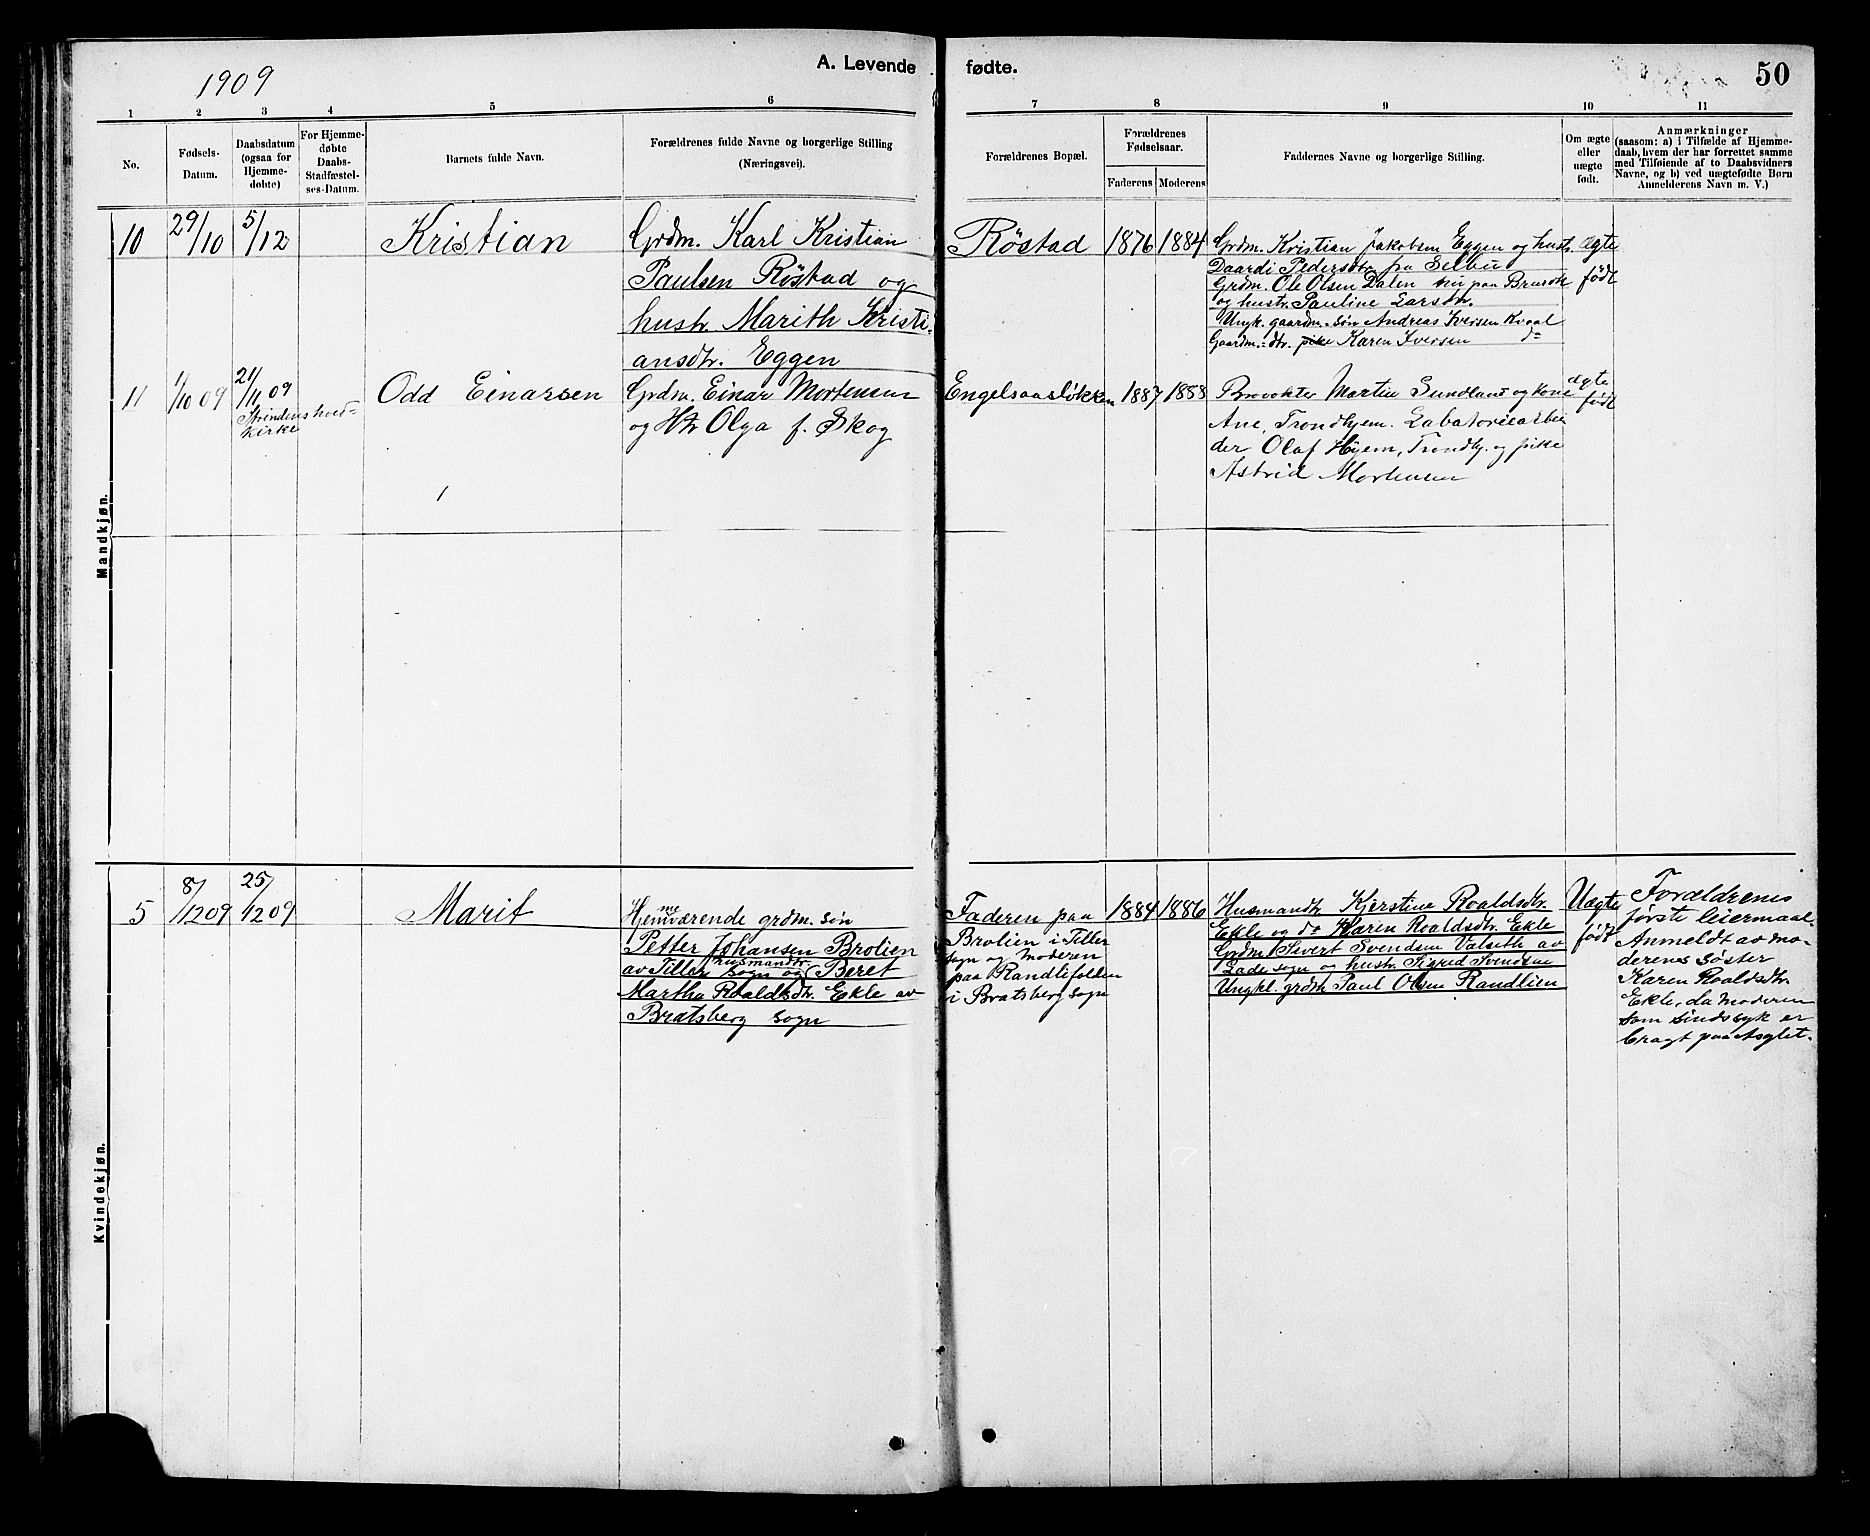 1909
A. Levende fødte.
50
1 2 3 4 5 6 7 8 9 10 11
No.
Fødsels-
Datum.
Daabsdatum
(ogsaa for
Hjemme-
døbte)
For Hjemme-
døbte
Daabs-
Stadfæstel-
ses-Datum.
Barnets fulde Navn.
Forældrenes fulde Navne og borgerlige Stilling
(Næringsvei).
Forældrenes Bopæl.
Forældrenes
Fødselsaar.
Faderens Moderens
Faddernes Navne og borgerlige Stilling.
Om ægte
eller
uægte
født.
Anmærkninger
(saasom: a) i Tilfælde af Hjemme-
daab, hvem der har forrettet samme
med Tilføiende af to Daabsvidners
Navne, og b) ved uægtefødte Børn
Anmelderens Navn m. V.)
Mandkjøn.
10
29/10
5/12
Kristian
Grdm. Karl Kristian
Paulsen Röstad og
hustr. Marith Kristi-
ansdtr. Eggen
Röstad
1876
1884
Grdm. Kristian Jakobsen Eggen og hustr.
Daardi Pedersdtr. fra Selbu
Grdm. Ole Olsen Dalen paa
og hustr. Pauline Larsdtr.
Ungk. gaardm.-søn Andreas Iversen Kvaal
Gaardm.-dtr. pike Karen Iversen do
Ægte
født
11
1/10 09
21/11 09
Strindens hved-
kirke
Odd Einarsen
Grdm. Einar Mortensen
og Htr Olga f. Skog
Engelsaasløkken
1887
1888
Martin Sundland og kone
Ane, Trondhjem. Labatoriearbei
der Olaf Hojem, Trondhj. og pike
Astrid Mortensen
ægte
født
Kvindekjøn.
5
8/12 09
25/12 09
Marit
Hjemmeværende grdm. søn
Petter Johansen Brolien
av Tiller sogn og husmandtr. Beret
Martha Roaldsdtr. Ekle av
Bratsberg sogn
Faderen paa
Brolien i Tiller
sogn og moderen
paa Randlifolden
i Bratsberg sogn
1884
1886
Husmandtr Kjerstine Roaldsdtr.
Ekle og do Karen Roaldsdtr. Ekle
Grdm Sivert Svendsen Valseth av
Lade sogn og hustr. Sigrid Svendsen
Ungkl. grdm Paul Olsen Randlien
Uægte
født
Forældrenes
første leiermaal.
Anmeldt av mo-
derenes søster
Karen Roaldsdtr
Ekle, da moderen
som sindssyk er
bragt paa Asylet.